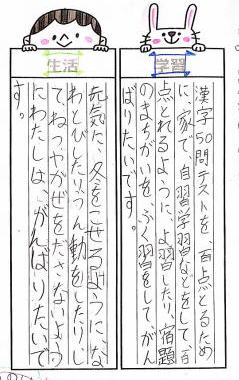 学習
漢字50問テストを、百点とるため
に、家で、自習学習などをして、百
点とれるように、よ習したり、宿題
のまちがいを、ふく習をして、がん
ばりたいです。
生活
元気に、冬をこせるように、な
わとびしたり、うん動をしたりし
て、ねつやかぜをださないよう
にわたしは、がんばりたいで
す。